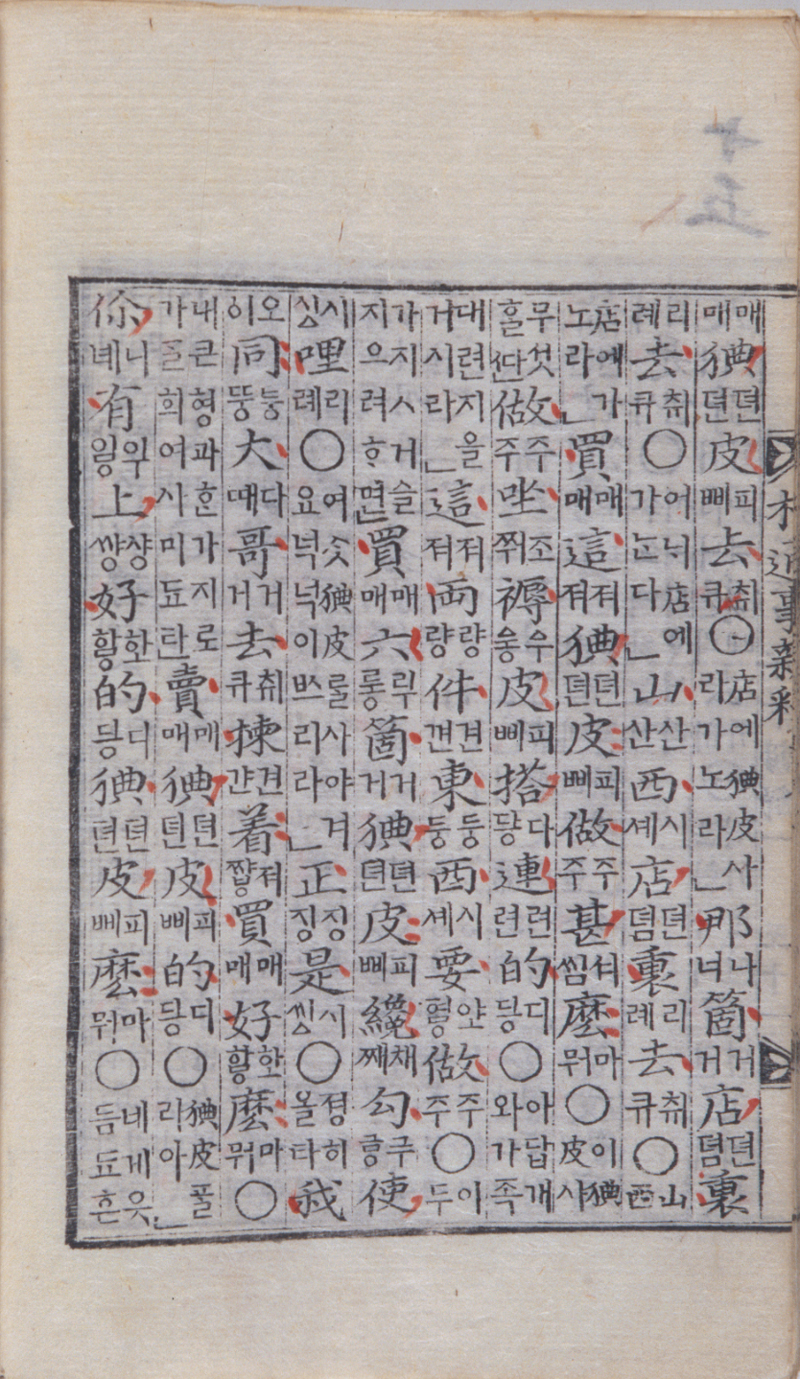 十五
朴通事新釋
매매猠뎐뎐皮삐피去큐취○店에猠皮사라가노라」那너나箇거거店뎜뎐裏
례리去큐취○어ᄂᆡ店에가ᄂᆞᆫ다」山산산西셰시店뎜뎐裏례리去큐취○山西
店에가노라」買매매這져져猠뎐뎐皮삐피做주주甚씸셔麽뭐마○이猠皮사
무섯ᄒᆞᆯᄯᅡᆫ做주주坐쭤조褥皮삐피搭닿다連련련的딯디○아답개와가족
대련지을거시라」這져져兩량량件껸견東둥둥西셰시要做주주○이두
가지ㅅ거슬지으려ᄒᆞ면買매매六箇거거猠뎐뎐皮삐피纔째채勾긓구使
싱시哩례리○여ᄉᆞᆺ猠皮ᄅᆞᆯ사야거요넉넉이ᄡᅳ리라」正징징是씽시○졍히올타我
오이同뚱둥大때다哥거거去큐취揀갼견着쨯져買매매好麽뭐마○
내큰형과ᄒᆞᆫ가지로가ᄀᆞᆯ희여사미됴탄賣매매猠뎐뎐皮삐피的딯디○猠皮ᄑᆞᆯ리아」
你녜니有上쌍샹好的딯디猠뎐뎐皮삐피麽뭐마○네게읏듬됴흔